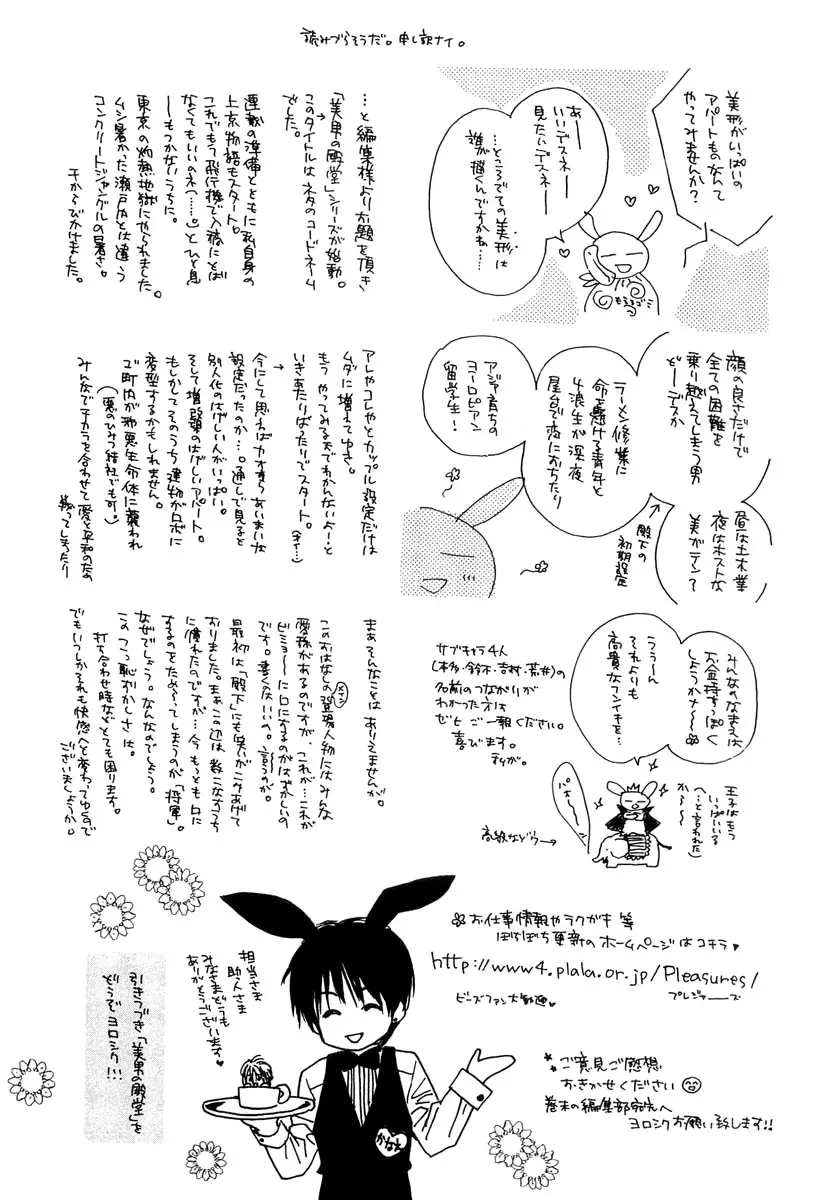 読みづらそうだ。申し訳ナイ。
美形がいっぱいの
アパートものなんて
やってみませんか?
あー
いいデスネー
見たいデスネー
…ところでその美形は
誰が描くんですかね……
もえるゴミ
…と編集様よりお題を頂き
「美男の殿堂」シリーズが始動。
このタイトルはネタのコードネーム
でした。
連載の準備とともに私自身の
上京物語もスタート。
これでもう飛行機で入稿にとば
なくてもいいのネ(……。)とひと息
ーもつかないうちに。
東京の灼熱地獄にやられました。
ムシ暑かった瀬戸内とは違う
コンクリートジャングルの暑さ。
干からびかけました。
顔の良さだけで
全ての困難を
乗り越えてしまう男
どーデスか
ラーメン修業に
命を懸ける青年と
浪生が深夜
屋台で恋におちたり
アジア育ちの
ヨーロピアン
留学生!
昼は土木業
夜はホストな
美ガテン?
殿下の
初期設定
アレやコレやとカップル設定だけは
ムダに増えてゆき。
もうやってみるまでわかんないよーと
いきあたりばったりでスタート。
今にして思えばカオすらあいまいな
設定だったのか…。通しで見ると
別人化のはげしい人がいっぱい。
そして増改築のはげしいアパート。
もしかしてそのうち建物がロボに
変型するかもしれません。
町内が邪悪生命体に襲われ
(悪のひみつ結社でも可。)
みんなでチカラを合わせて愛と平和のため
戦ってしまったり
みんなのなまえは
お金持ちっぽく
しようかナ〜
うぅーん
それよりも
高貴なフンイキを…
サブキャラ4人
(本多・鈴木・吉村・荒井)の
名前のつながりが
わかった方は
ゼヒご一報ください。
喜びます。
私が。
王子はもう
いっぱいいる
(…と言われた)
から〜
パオ〜ン
高級などう→
まあそんなことはありえませんが。
このおはなしの登場人物にはみんな
愛称があるのですが、これが…これが
ビミョーに口にするのがはずかしいの
です。書くはいいの。言うのが。
最初は「殿下」にも笑いがこみあげて
おりました。まぁこの辺は数こなすうち
に慣れたのですが…今もっとも口に
するのをためらってしまうのが「将軍」。
なぜでしょう。なんなのでしょう。
このこっ恥ずかしさは。
打ち合わせ時などとても困ります。
でもいつしかそれも快感へと変わってゆくので
ございましょうか。
お仕事情報やラクガキ等
ぼちぼち更新のホームページはコチラ♥
http://www4.plala.or.jp/Pleasures/
プレジャーズ
ビーズファン大歓迎♥
担当さま
助人さま
みなさまどうも
ありがとうございます
引きつづき「美男の殿堂」を
どうぞヨロシク!!!
かなと
ご意見ご感想
おきかせください
巻末の編集部宛先へ
ヨロシクお願い致します!!